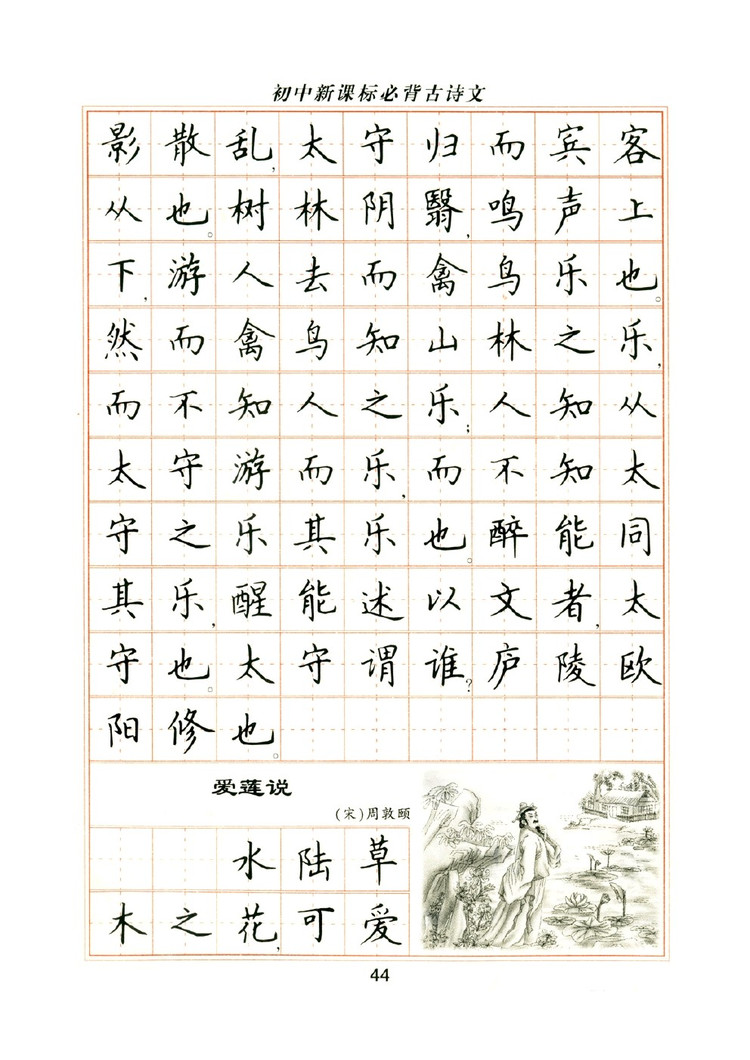 初中新课标必背古诗文
影散乱,太守归而宾客
从也。树林阴翳,鸣声上
下,游人去而禽鸟乐也。
然而禽鸟知山林之乐,
而不知人之乐;人知从
太守游而乐,而不知太
守之乐其乐也。醉能同
其乐,醒能述以文者,太
守也。太守谓谁?庐陵欧
阳修也。
爱莲说
(宋)周敦颐
水陆草
木之花,可爱
44